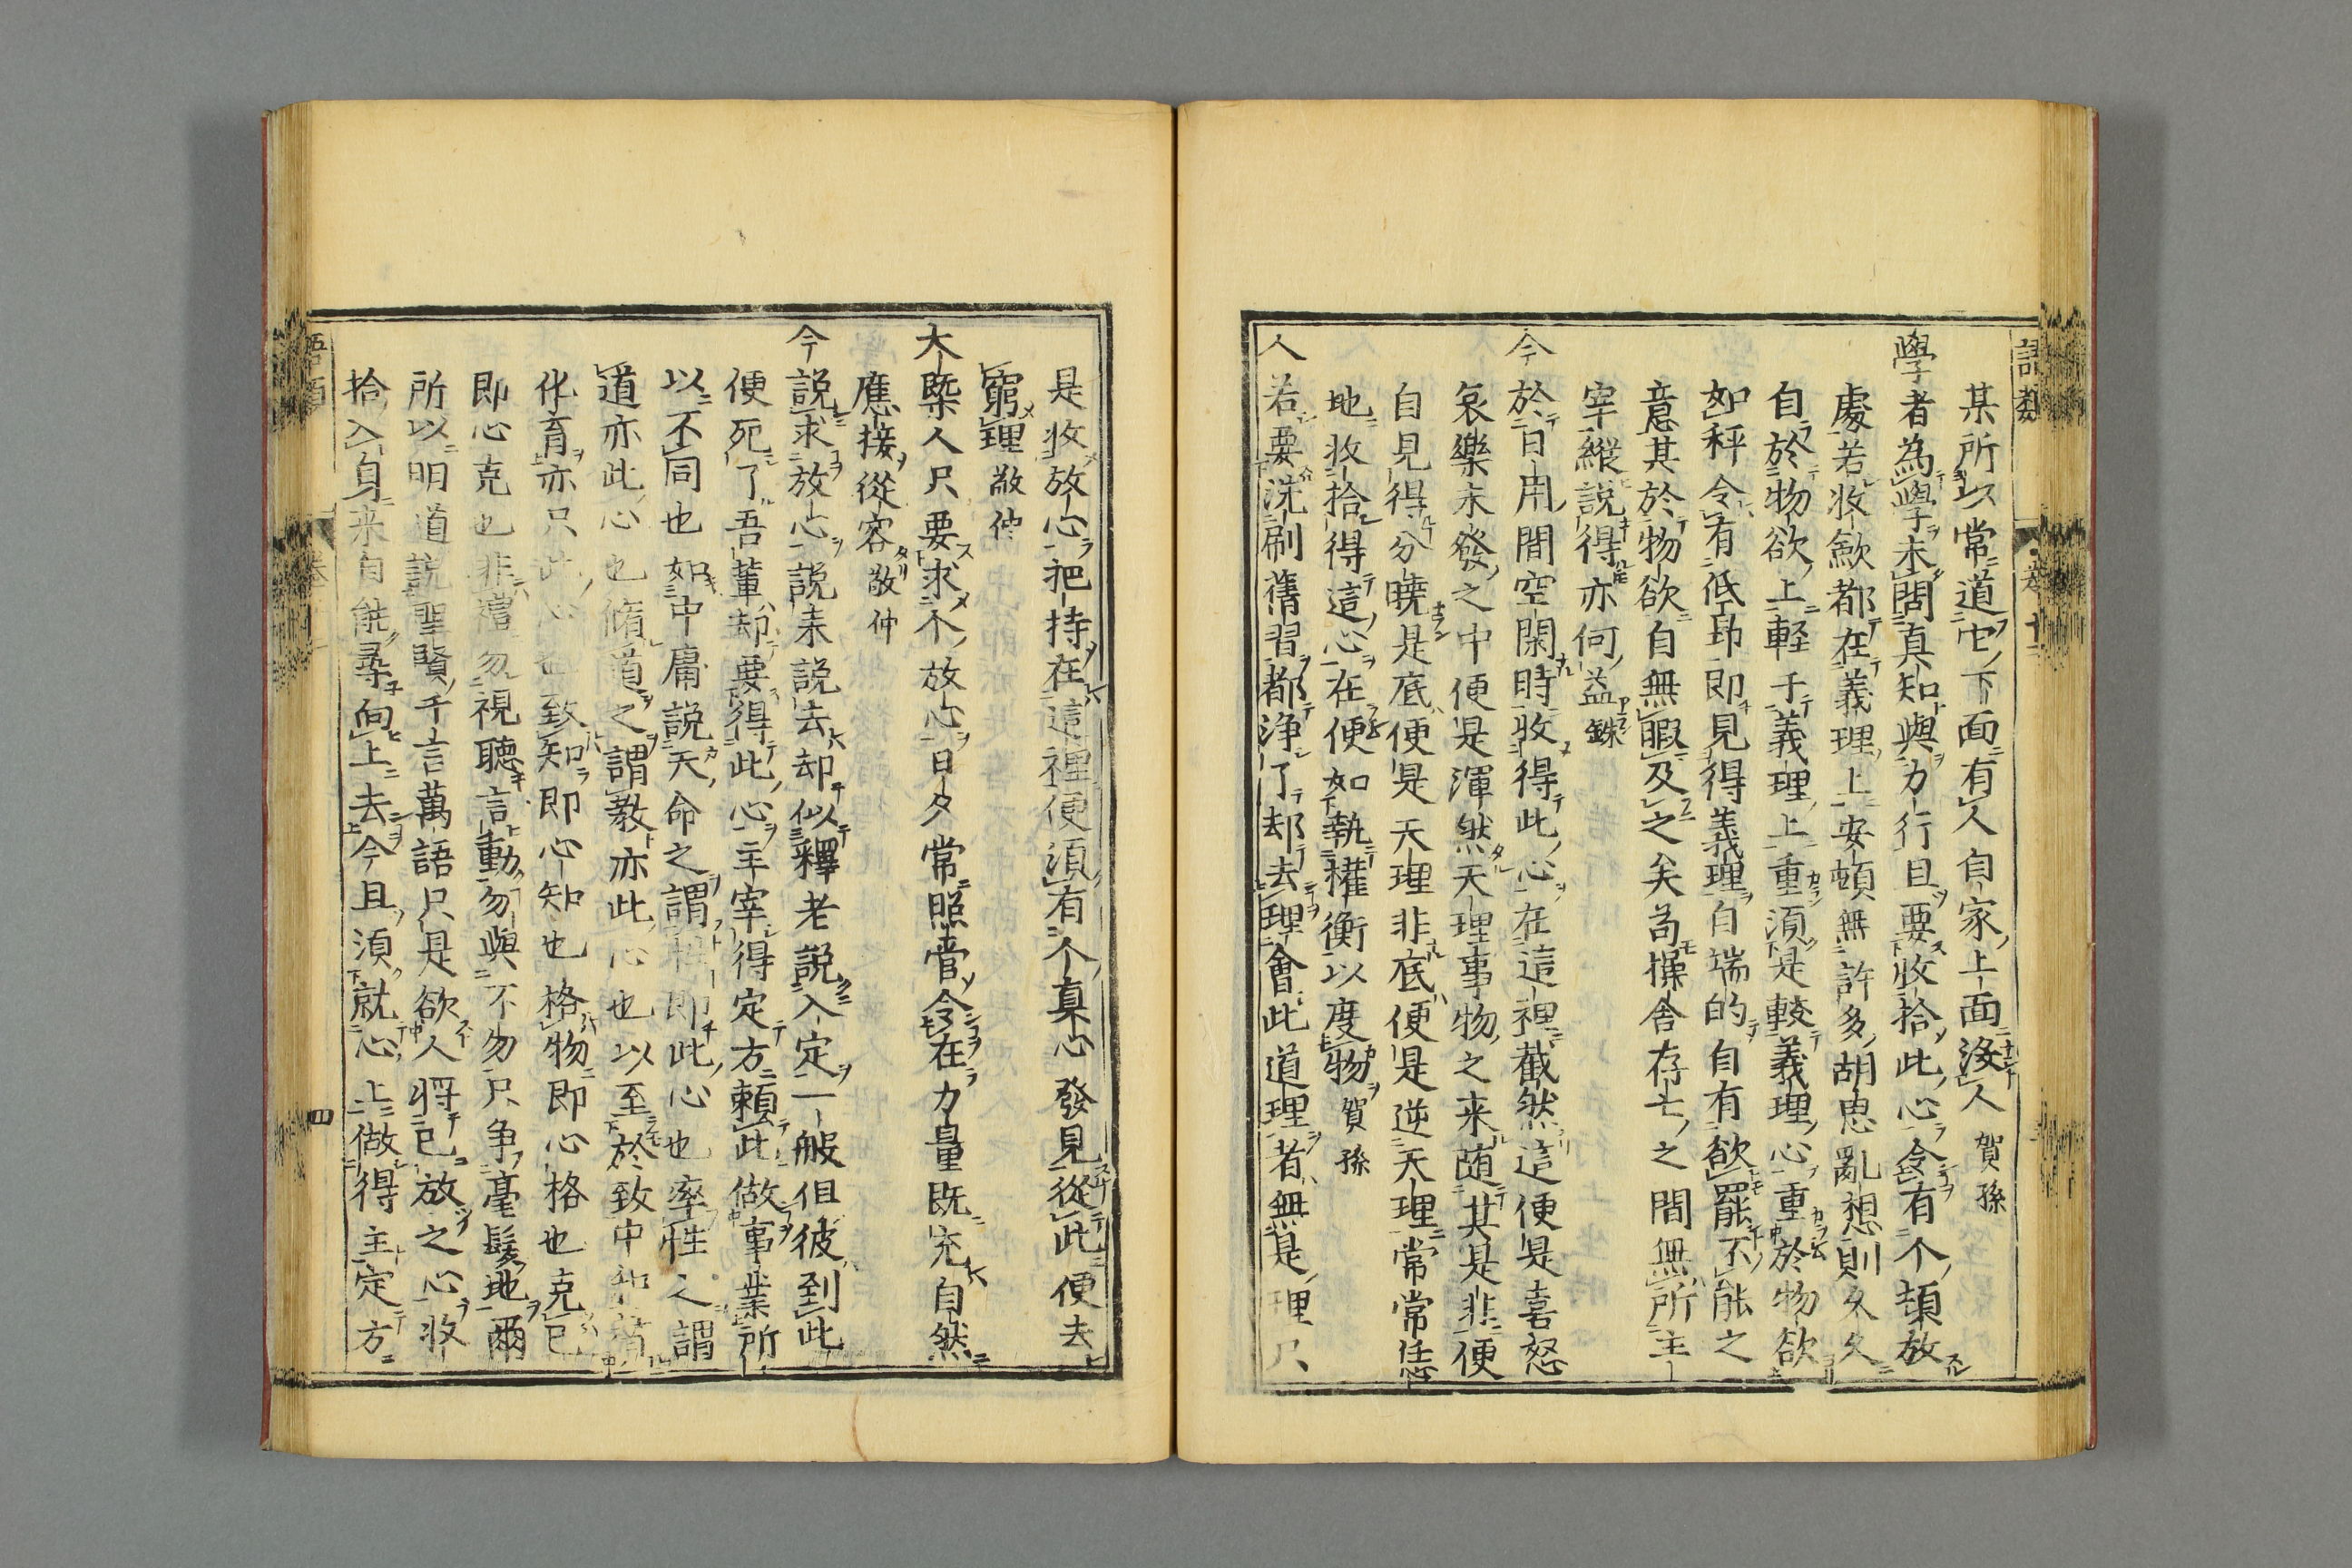 語類
卷十二
某所以常道它下面有人自家上面沒人 賀孫
學者為學未問真知與力行且要收拾此心令有个頓放
處若收斂都在義理上安頓無許多胡思亂想則久久
自於物欲上輕于義理上重須是較義理心重於物欲
如秤令有低昂即見得義理自端的自有欲罷不能之
意其於物欲自無暇及之矣苟操舍存亡之間無所主
宰縱說得亦何益 銖
今於日用間空閑時收得此心在這裡截然這便是喜怒
哀樂未發之中便是渾然天理事物之来随其是非便
自見得分曉是底便是天理非底便是逆天理常常恁
地收拾得這心在便如執權衡以度物 賀孫
人若要洗刷舊習都浄了却去理會此道理者無是理只
是收放心把持在這裡便須有个真心發見從此便去
窮理 敬仲
大槩人只要求个放心日夕常照管令在力量既充自然
應接從容 敬仲
今說求放心說来說去却似釋老說入定一般但彼到此
便死了吾輩却要得此心主宰得定方頼此做事業所
以不同也如中庸說天命之謂性即此心也率性之謂
道亦此心也脩道之謂教亦此心也以至於致中和賛
化育亦只此心也致知即心知也格物即心格也克己
即心克也非禮勿視聽言動勿與不勿只争毫髮地爾
所以明道說聖賢千言萬語只是欲人将已放之心收
拾入身来自能尋向上去今且須就心上做得主定方
語類
卷十
四